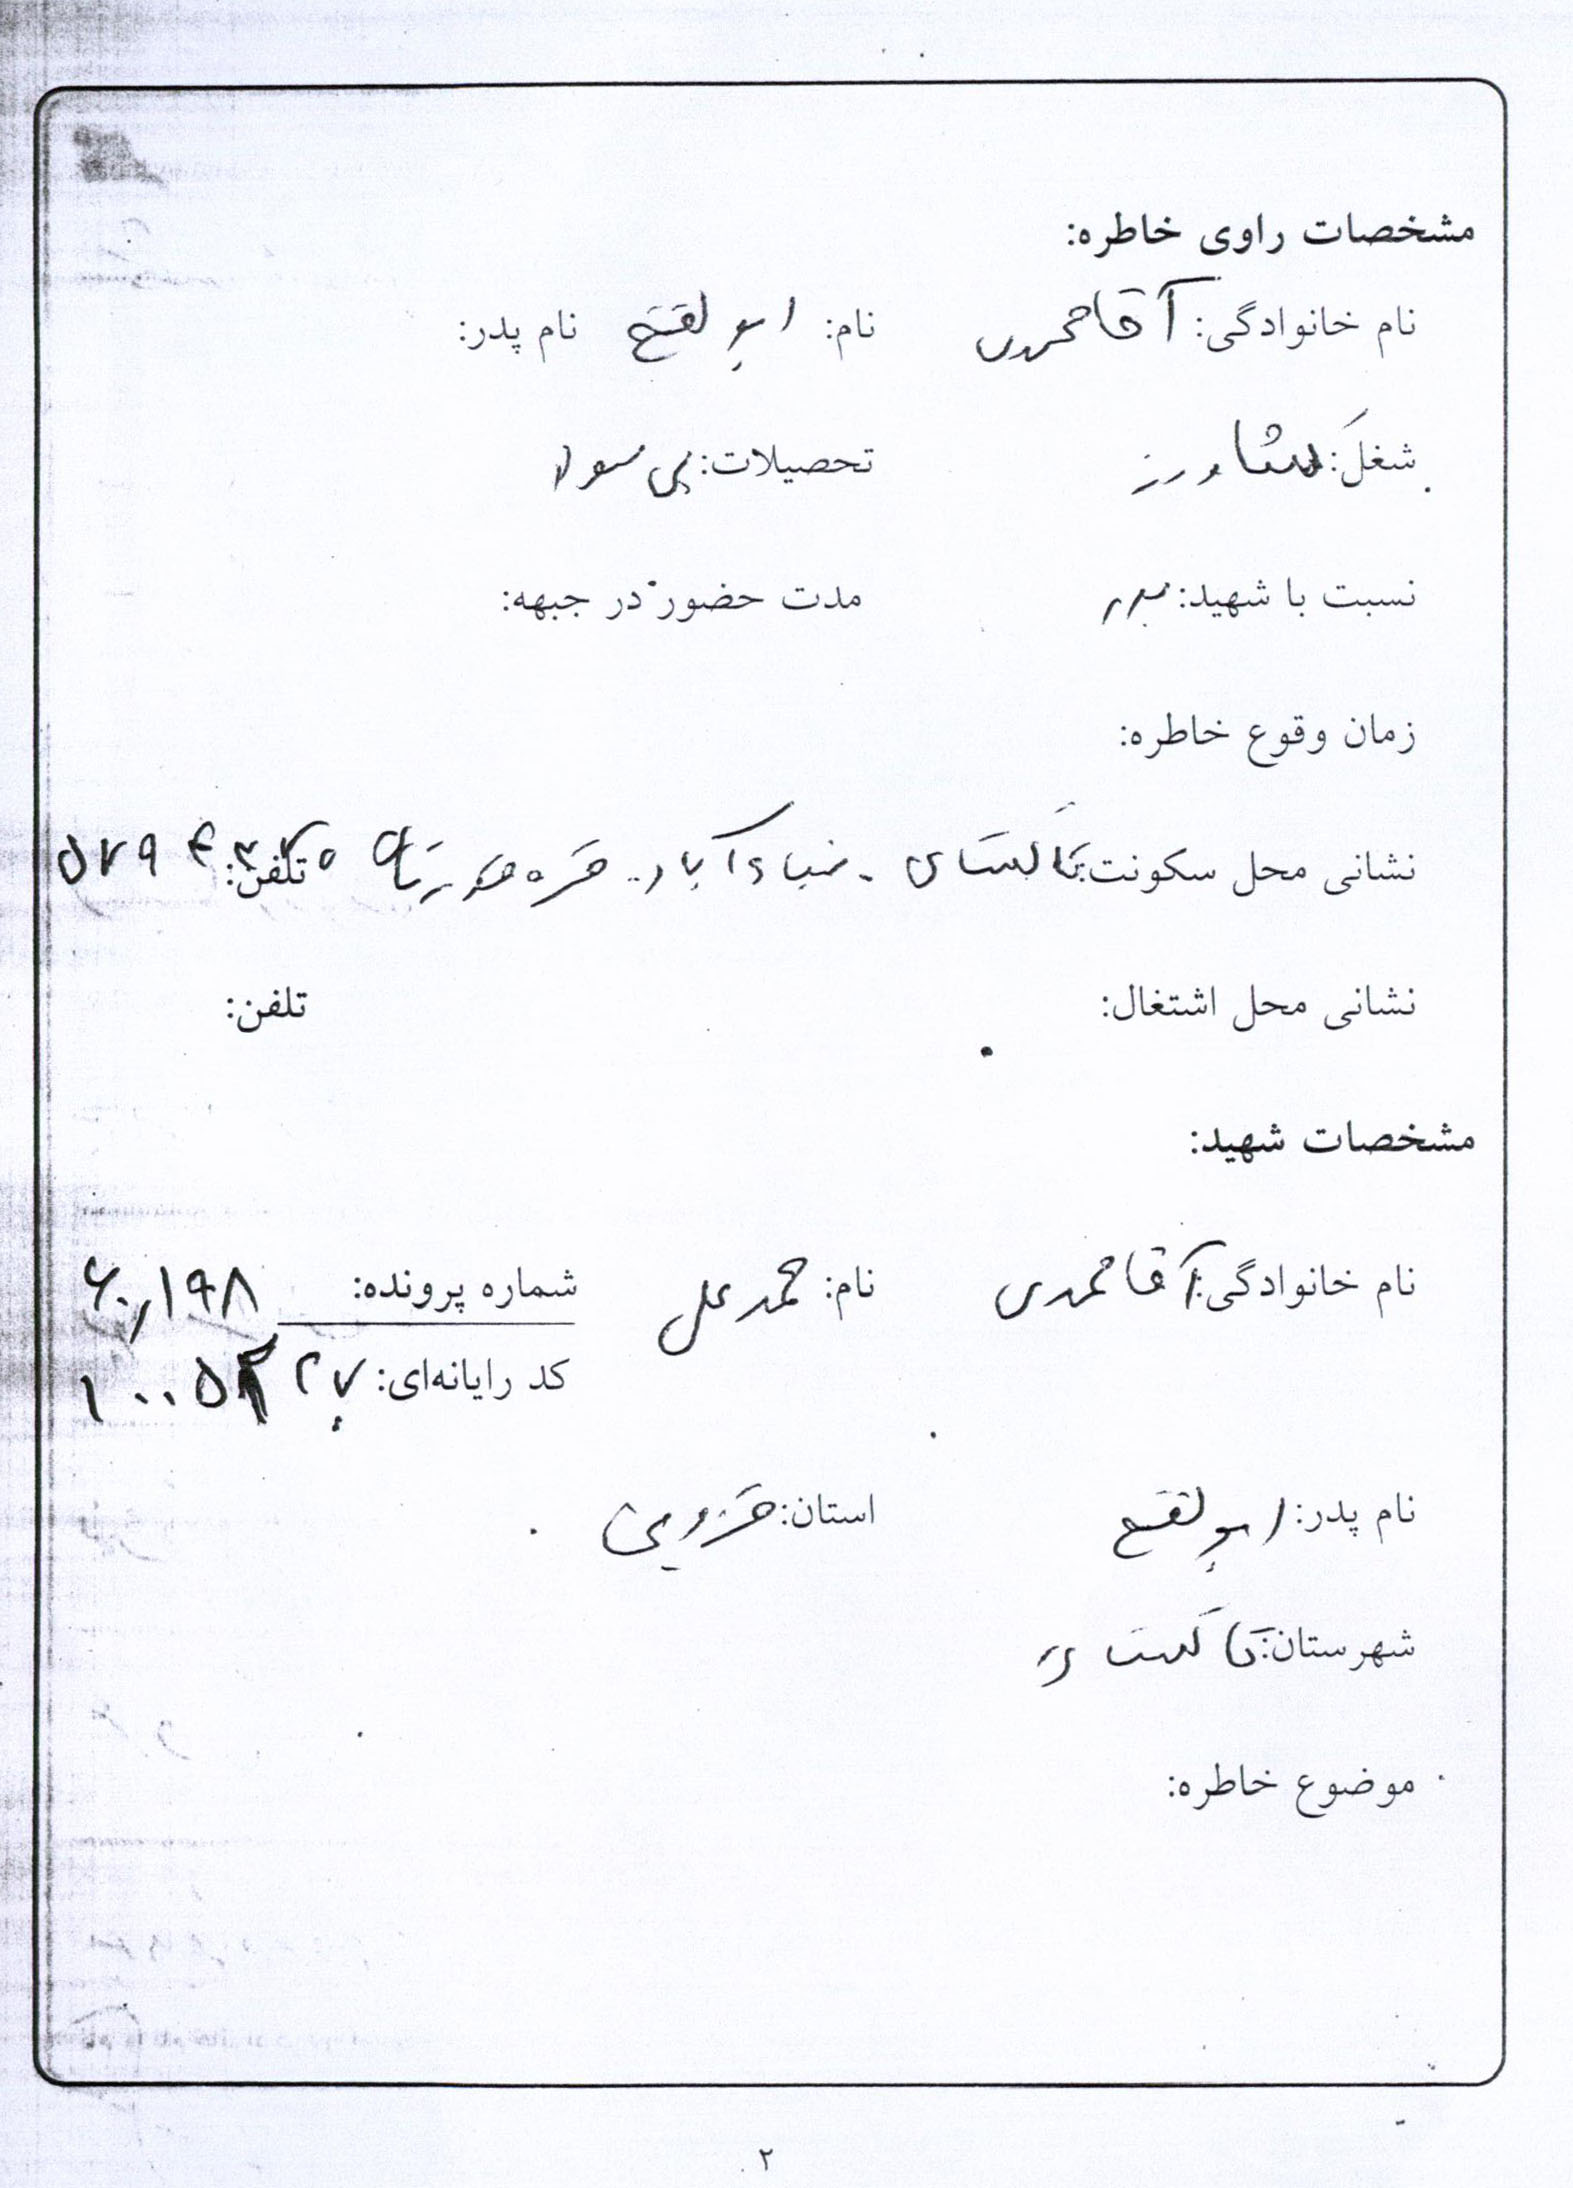 مشخصات راوی خاطره:
نام خانوادگی: آقامحمدی نام: ابوالفتح نام پدر:
شغل: کشاورز تحصیلات: بی سواد
نسبت با شهید: پدر مدت حضور در جبهه:
زمان وقوع خاطره:
نشانی محل سکونت: تاکستان - ضیاءآباد - تلفن:
نشانی محل اشتغال: تلفن:
مشخصات شهید:
نام خانوادگی: آقامحمدی نام: محمدعلی شماره پرونده:
کد رایانه‌ای:
نام پدر: ابوالفتح استان: قزوین
شهرستان: تاکستان
موضوع خاطره:
۲